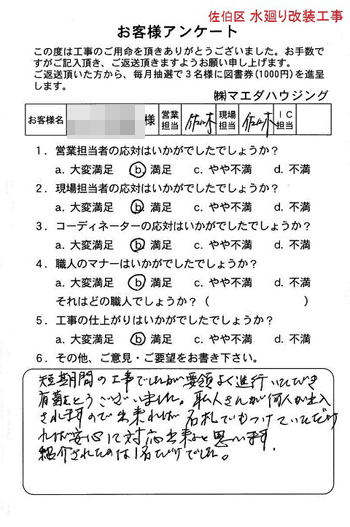 佐伯区 水廻り改装工事
お客様アンケート
この度は工事のご用命を頂きありがとうございました。お手数で
すがご記入頂き、ご返送頂きますようお願い申し上げます。
ご返送頂いた方から、毎月抽選で3名様に図書券(1000円)を進呈
します。
㈱マエダハウジング
お客様名 様 営業担当 佐々木 現場担当 佐々木 IC担当
1．営業担当者の応対はいかがでしたでしょうか？
a. 大変満足 b. 満足 c. やや不満 d. 不満
2．現場担当者の応対はいかがでしたでしょうか？
a. 大変満足 b. 満足 c. やや不満 d. 不満
3．コーディネーターの応対はいかがでしたでしょうか？
a. 大変満足 b. 満足 c. やや不満 d. 不満
4．職人のマナーはいかがでしたでしょうか？
a. 大変満足 b. 満足 c. やや不満 d. 不満
それはどの職人でしょうか？（ ）
5．工事の仕上がりはいかがでしたでしょうか？
a. 大変満足 b. 満足 c. やや不満 d. 不満
6．その他、ご意見・ご要望をお書き下さい。
短期間の工事でしたが要領よく進行いただき
有難とうございました。職人さんが何人か出入
されますので出来れば名札でもつけていただけ
れば安心して対応出来ると思います。
紹介されたのは1名だけでした。